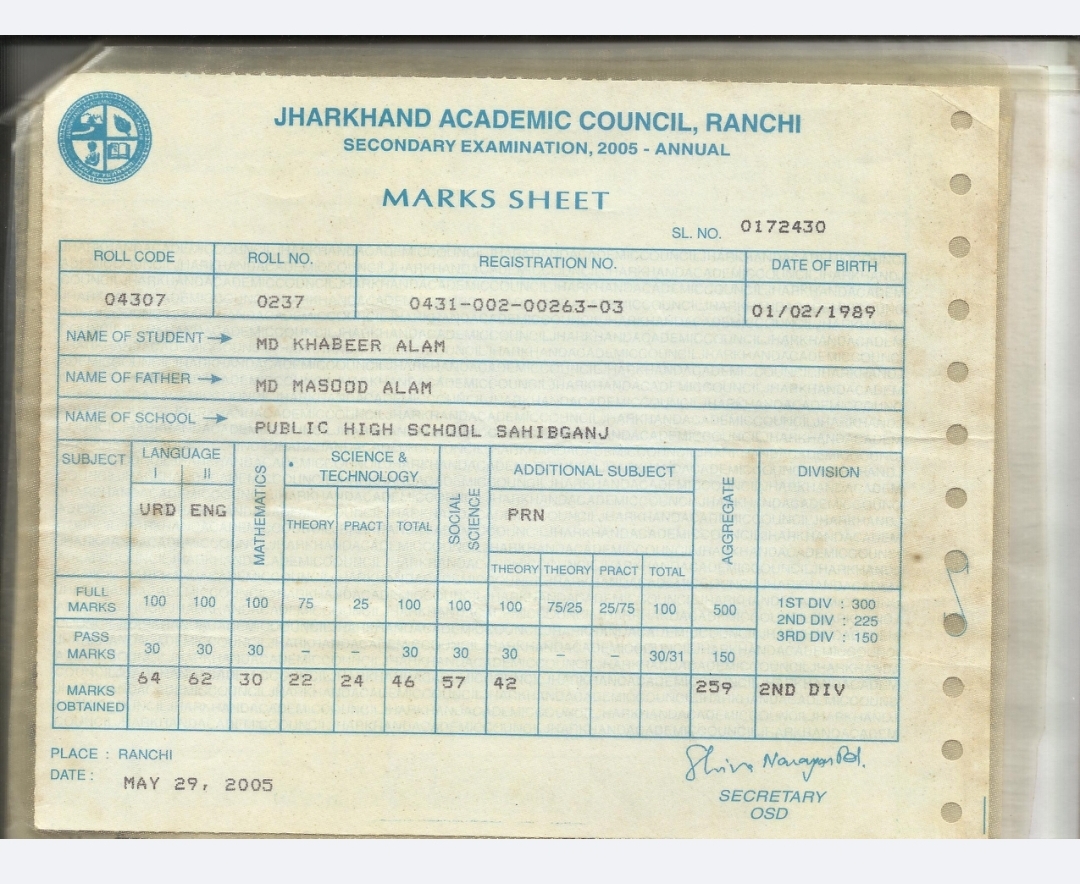 JHARKHAND ACADEMIC COUNCIL, RANCHI
SECONDARY EXAMINATION, 2005 - ANNUAL
MARKS SHEET
SL. NO. 0172430
ROLL CODE ROLL NO. REGISTRATION NO. DATE OF BIRTH
04307 0237 0431-002-00263-03 01/02/1989
NAME OF STUDENT → MD KHABEER ALAM
NAME OF FATHER → MD MASOOD ALAM
NAME OF SCHOOL → PUBLIC HIGH SCHOOL SAHIBGANJ
SUBJECT LANGUAGE I II MATHEMATICS SCIENCE & TECHNOLOGY SOCIAL SCIENCE ADDITIONAL SUBJECT AGGREGATE DIVISION
URD ENG THEORY PRACT TOTAL PRN
THEORY THEORY PRACT TOTAL
FULL MARKS 100 100 100 75 25 100 100 100 75/25 25/75 100 500 1ST DIV : 300
2ND DIV : 225
3RD DIV : 150
PASS MARKS 30 30 30 – – 30 30 30 – – 30/31 150
MARKS OBTAINED 64 62 30 22 24 46 57 42 259 2ND DIV
PLACE : RANCHI
DATE : MAY 29, 2005
SECRETARY
OSD